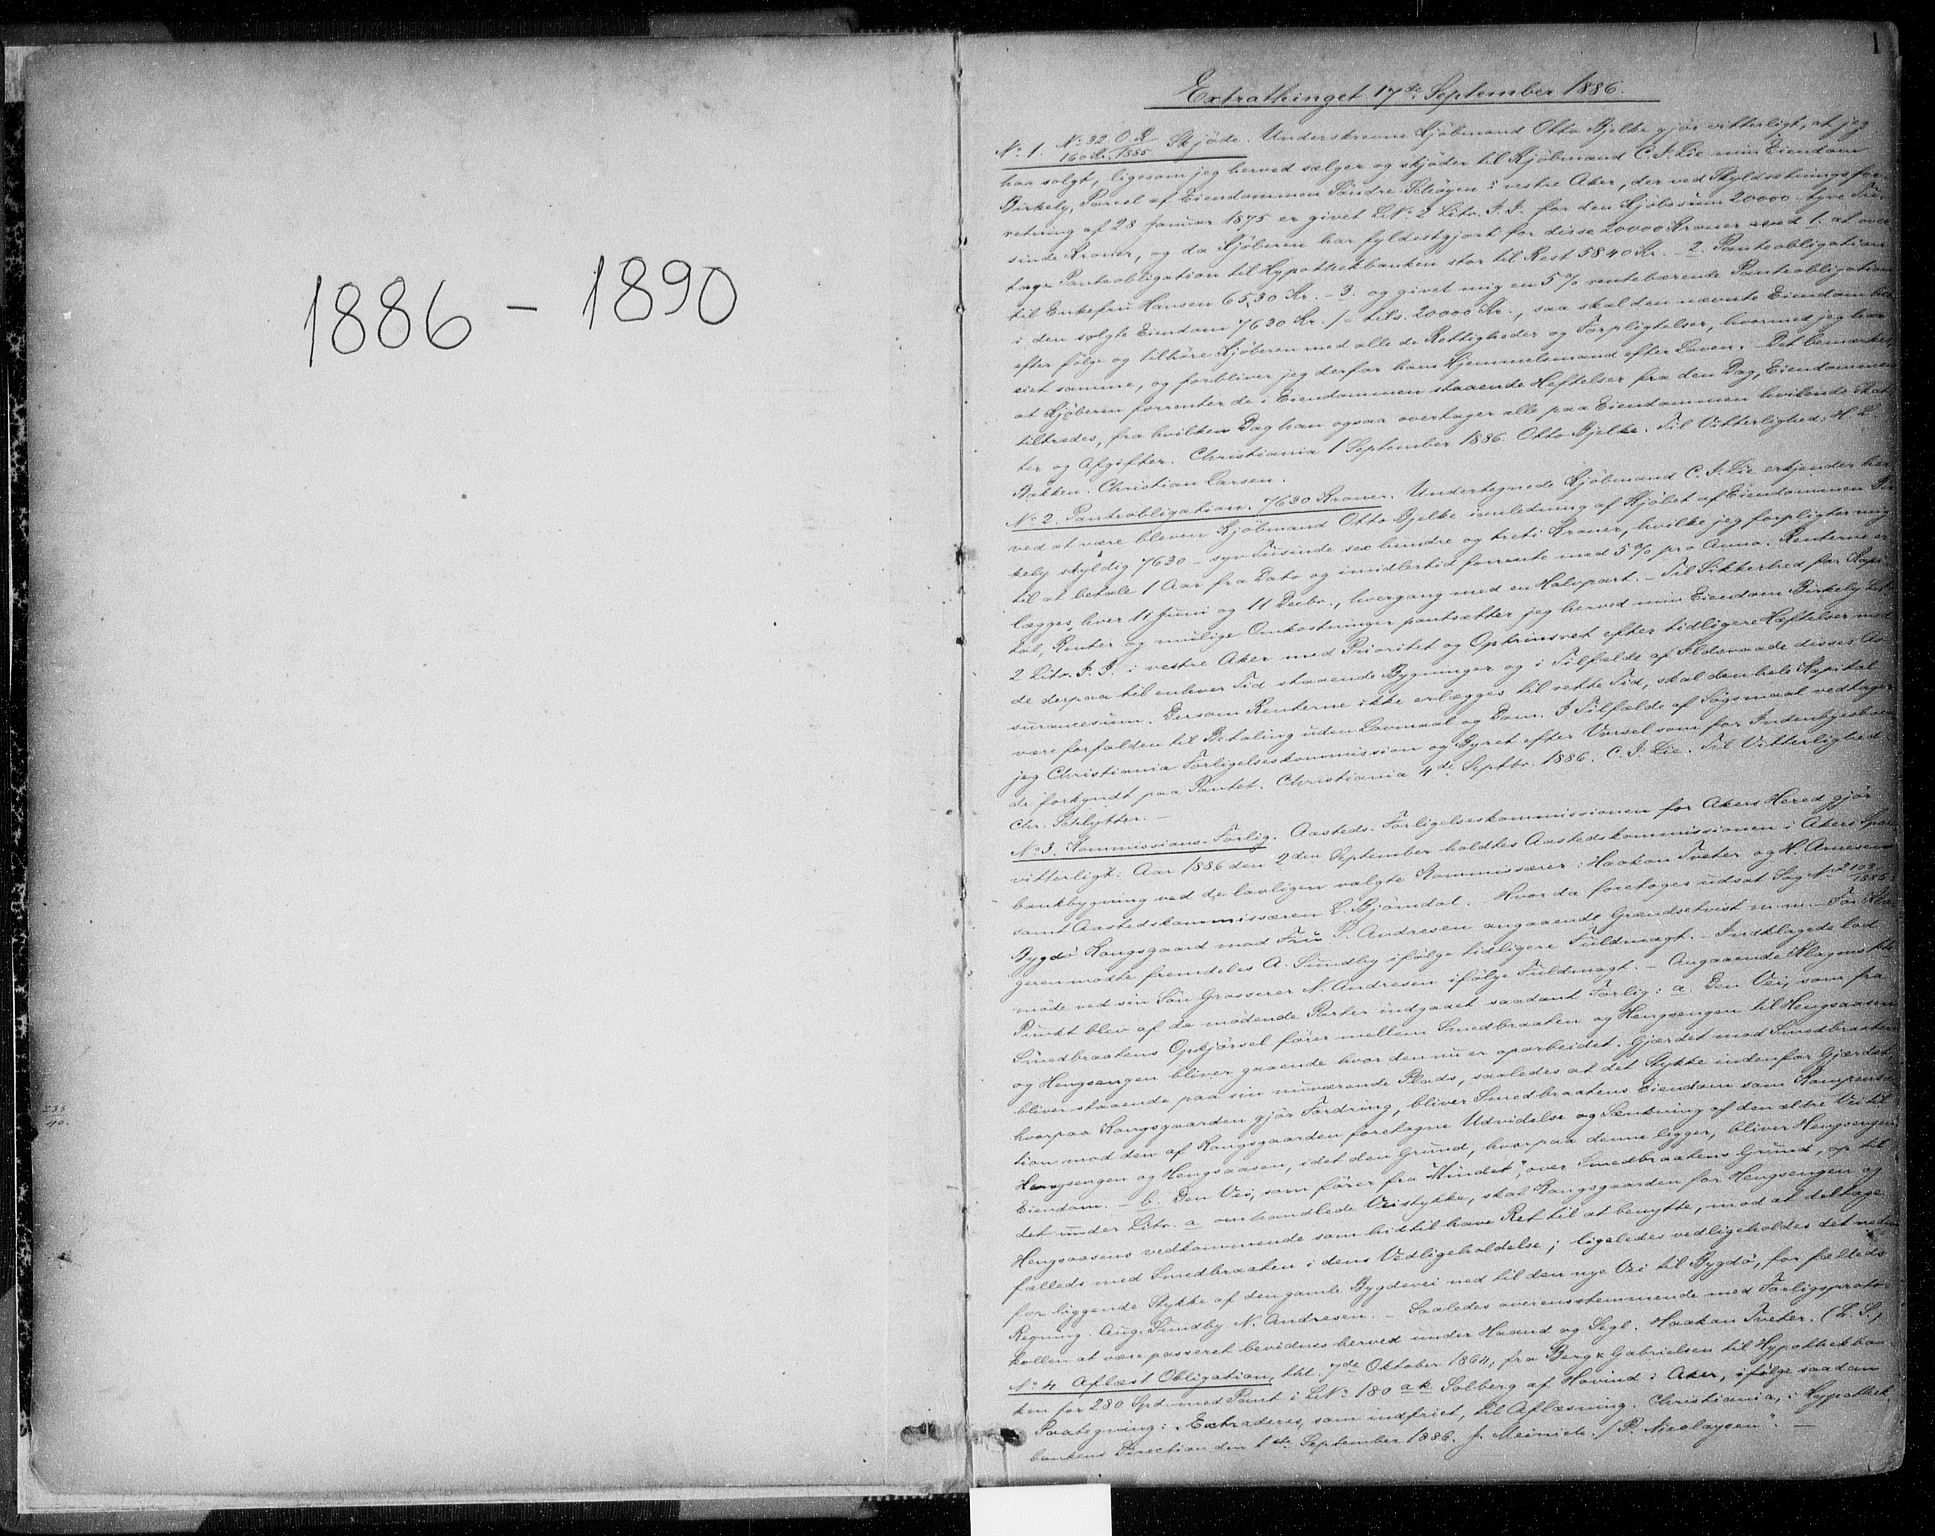 1886 - 1890
235
40.
1
Extrathinget 17de September 1886.
No 1. No 32 O R 16 1885 Skjöde. Underskrevne Kjöbmand Otto Bjelke gjör vitterligt, at jeg
har solgt, ligesom jeg herved sælger og skjöder til Kjöbmand C. J. Lie min Eiendom
Birkely, Parcel af Eiendommen Söndre Sköyen i vestre Aker, der ved Skyldsætningsfor-
retning af 28 Januar 1875 er givet LNo 2 Litr. J. J. for den Kjöbesum 20000 - tyve Tu-
sinde Kroner, og da Kjöberen har fyldestgjort for disse 20000 Kroner ved 1. at over
tage Panteobligation til Hypothekbanken stor til Rest 5840 Kr. - 2. Panteobligation
til Enkefru Hansen 6530 Kr. - 3. og givet mig en 5% rentebærende Panteobligation
i den solgte Eiendom 7630 Kr. /= tils. 20000 Kr., saa skal den nævnte Eiendom her
efter fölge og tilhöre Kjöberen med alle de Rettigheder og Forpligtelser, hvormed jeg har
eiet samme, og forbliver jeg derfor hans Hjemmelsmand efter Loven. - Det bemærkes,
at Kjöberen forrenter de i Eiendommen staaende Heftelser fra den Dag, Eiendommen
tiltrædes, fra hvilken Dag han ogsaa overtager alle paa Eiendommen hvilende Skat-
ter og Afgifter. Christiania 1 September 1886. Otto Bjelke. Til Vitterlighed: H. L.
Bakken. Christian Larsen.
No 2. Panteobligation. 7630 Kroner. Undertegnede Kjöbmand C. J. Lie erkjender her
ved at være bleven Kjöbmand Otto Bjelke i anledning af Kjöbet af Eiendommen Bir-
kely skyldig 7630 - syv Tusinde sex hundre og treti Kroner, hvilke jeg forpligter mig
til at betale 1 Aar fra Dato og imidlertid forrente med 5% pro Anno. Renterne er
lægges hver 11 Juni og 11 Decbr., hvergang med en Halvpart. - Til Sikkerhed for Kapi-
tal, Renter og mulige Omkostninger pantsætter jeg herved min Eiendom Birkely LNo
2 Litr. J. J. i vestre Aker med Prioritet og Optrinsret efter tidligere Heftelser med
de derpaa til enhver Tid staaende Bygninger og i Tilfælde af Ildsvaade disses As-
surancesum. Dersom Renterne ikke erlægges til rette Tid, skal den hele Kapital
være forfalden til Betaling uden Lovmaal og Dom. I Tilfælde af Sögsmaal vedtager
jeg Christiania Forligelseskommission og Byret efter Varsel som for Indenbyesboen-
de forkyndt paa Pantet. Christiania 4de Septbr. 1886. C. J. Lie. Til Vitterlighed
Chr. Schlytter. -
No 3. Kommissions-Forlig. Aasteds-Forligelseskommissionen for Akers Hered gjör
vitterligt: Aar 1886 den 2den September holdtes Aastedskommissionen i Akers Spar
bankbygning ved de lovligen valgte Kommissærer: Haakon Tveter og H. Arnesen
samt Aastedskommissæren L. Björndal. Hvorda foretoges udsat Sag No 103 1886:
Bygdö Kongsgaard mod Fru P. Andresen angaaende Grændsetvist m.m. - For Kla-
geren mödte fremdeles A. Sundby ifölge tidligere Fuldmagt. - Indklagede lod
möde ved sin Sön Grosserer N. Andresen ifölge Fuldmagt. - Angaaende Klagens 1ste
Punkt blev af de mödende Parter indgaaet saadant Forlig: a. Den Vei, som fra
Smedbraatens Opkjörsel förer mellem Smedbraaten og Hengsengen til Hengsaasen
og Hengsengen bliver gaaende hvor den nu er oparbeidet. Gjærdet mod Smedbraaten
bliver staaende paa sin nuværende Plads, saaledes at det Stykke indenfor Gjærdet,
hvorpaa Kongsgaarden gjör Fordring, bliver Smedbraatens Eiendom som Kompensa-
tion mod den af Kongsgaarden foretagne Udvidelse og Sænkning af den ældre Vei til
Hengsengen og Hengsaasen, idet den Grund, hvorpaa denne ligger, bliver Hengsengens
Eiendom. - b. Den Vei, som förer fra "Mindet", over Smedbraatens Grund, op til
det under Litr. a omhandlede Veistykke, skal Kongsgaarden for Hengsengen og
Hengsaasens vedkommende som hidtil have Ret til at benytte, mod at deltage
fælleds med Smedbraaten i dens Vedligeholdelse; ligeledes vedligeholdes det neden
for liggende Stykke af den gamle Bygdevei ned til den nye Vei til Bygdö, for fælleds
Regning. Aug. Sundby. N. Andresen. - Saaledes overensstemmende med Forligsproto-
kollen at være passeret bevidnes herved under Haand og Segl. Haakon Tveter. (L. S.)
No 4. Aflæst Obligation, thl. 7de Oktober 1864, fra Berg & Gabrielsen til Hypothekban-
ken for 280 Spd. med Pant i LNo 180 ak Solberg af Hovind i Aker, ifölge saadan
Paategning: "Extraderes, som indfriet, til Aflæsning. Christiania, i Hypothek-
bankens Direction den 1ste September 1886. J. Meinich. / P. Nicolaysen". -